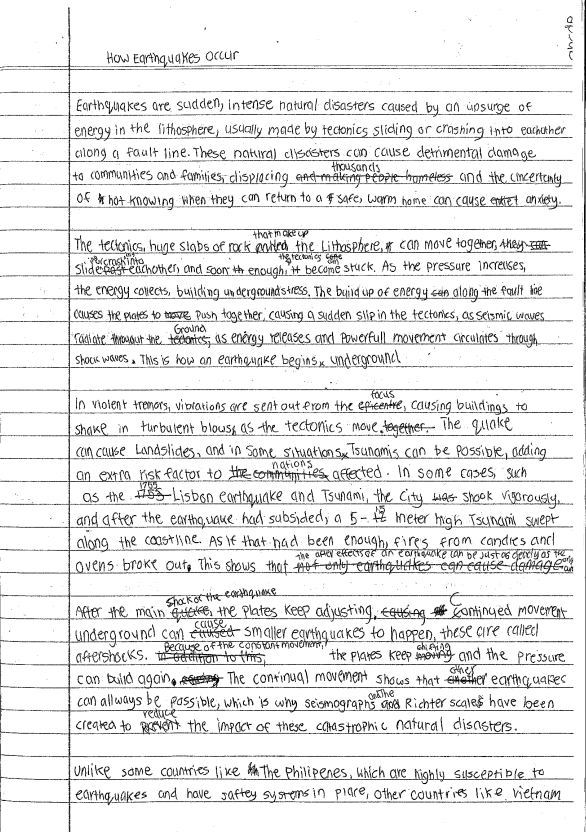 How Earthquakes Occur
Earthquakes are sudden, intense natural disasters caused by an upsurge of
energy in the lithosphere, usually made by tectonics sliding or crashing into eachother
along a fault line. These natural disasters can cause detrimental damage
to communities and families, displacing thousands and the uncertenty
of not knowing when they can return to a safe, warm home can cause anxiety.
The tectonics, huge slabs of rock that make up the Lithosphere, can move together,
slide or crash into eachother, and soon enough, the tectonics can become stuck. As the pressure increases,
the energy collects, building underground stress. The build up of energy along the fault line
causes the plates to push together, causing a sudden slip in the tectonics, as seismic waves
radiate throughout the Ground, as energy releases and powerfull movement circulates through
shock waves. This is how an earthquake begins, underground
In violent tremors, vibrations are sent out from the focus, causing buildings to
shake in turbulent blows, as the tectonics move. The quake
can cause Landslides, and in some situations, Tsunamis can be possible, adding
an extra risk factor to nations affected. In some cases, such
as the 1755 Lisbon earthquake and Tsunami, the City shook vigorously,
and after the earthquake had subsided, a 5-15 meter high Tsunami swept
along the coastline. As if that had been enough, fires from candles and
ovens broke out. This shows that the after effects of an earthquake can be just as deadly as the
After the main shock of the earthquake, the plates keep adjusting. Continued movement
underground can cause smaller earthquakes to happen, these are called
aftershocks. Because of the constant movement, the plates keep shifting and the pressure
can build again. The continual movement shows that other earthquakes
can allways be possible, which is why seismographs and the Richter scale have been
created to reduce the impact of these catastrophic natural disasters.
Unlike some countries like The Philipenes, which are highly susceptible to
earthquakes and have saftey systems in place, other countries like vietnam